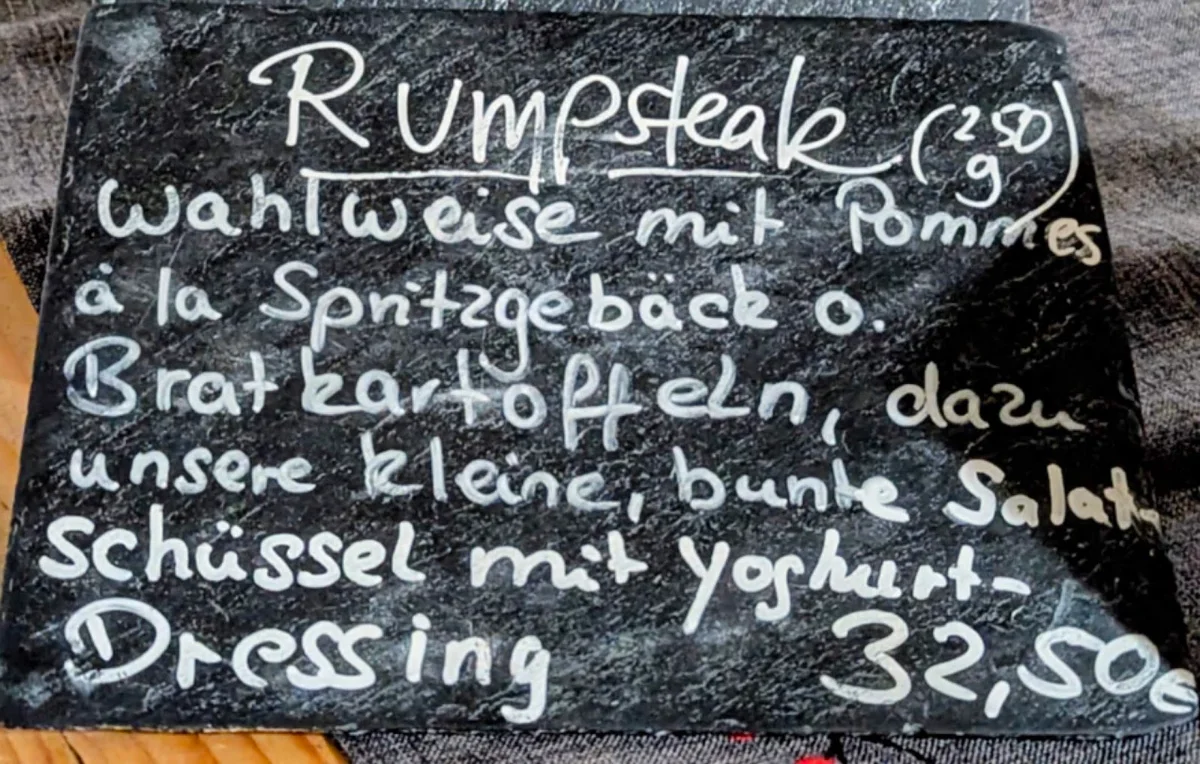 Rumpsteak (250 g)
wahlweise mit Pommes
à la Spritzgebäck o.
Bratkartoffeln, dazu
unsere kleine, bunte Salat-
schüssel mit Yoghurt-
Dressing 32,50€